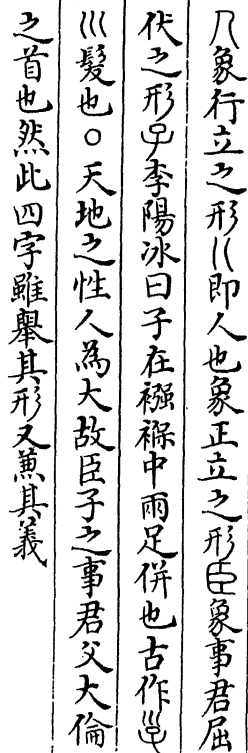 𠆢象行立之形〣即人也象正立之形臣象事君屈
伏之形子李陽冰曰子在襁褓中兩足併也古作㜽
巛髮也○天地之性人為大故臣子之事君父大倫
之首也然此四字雖舉其形又兼其義